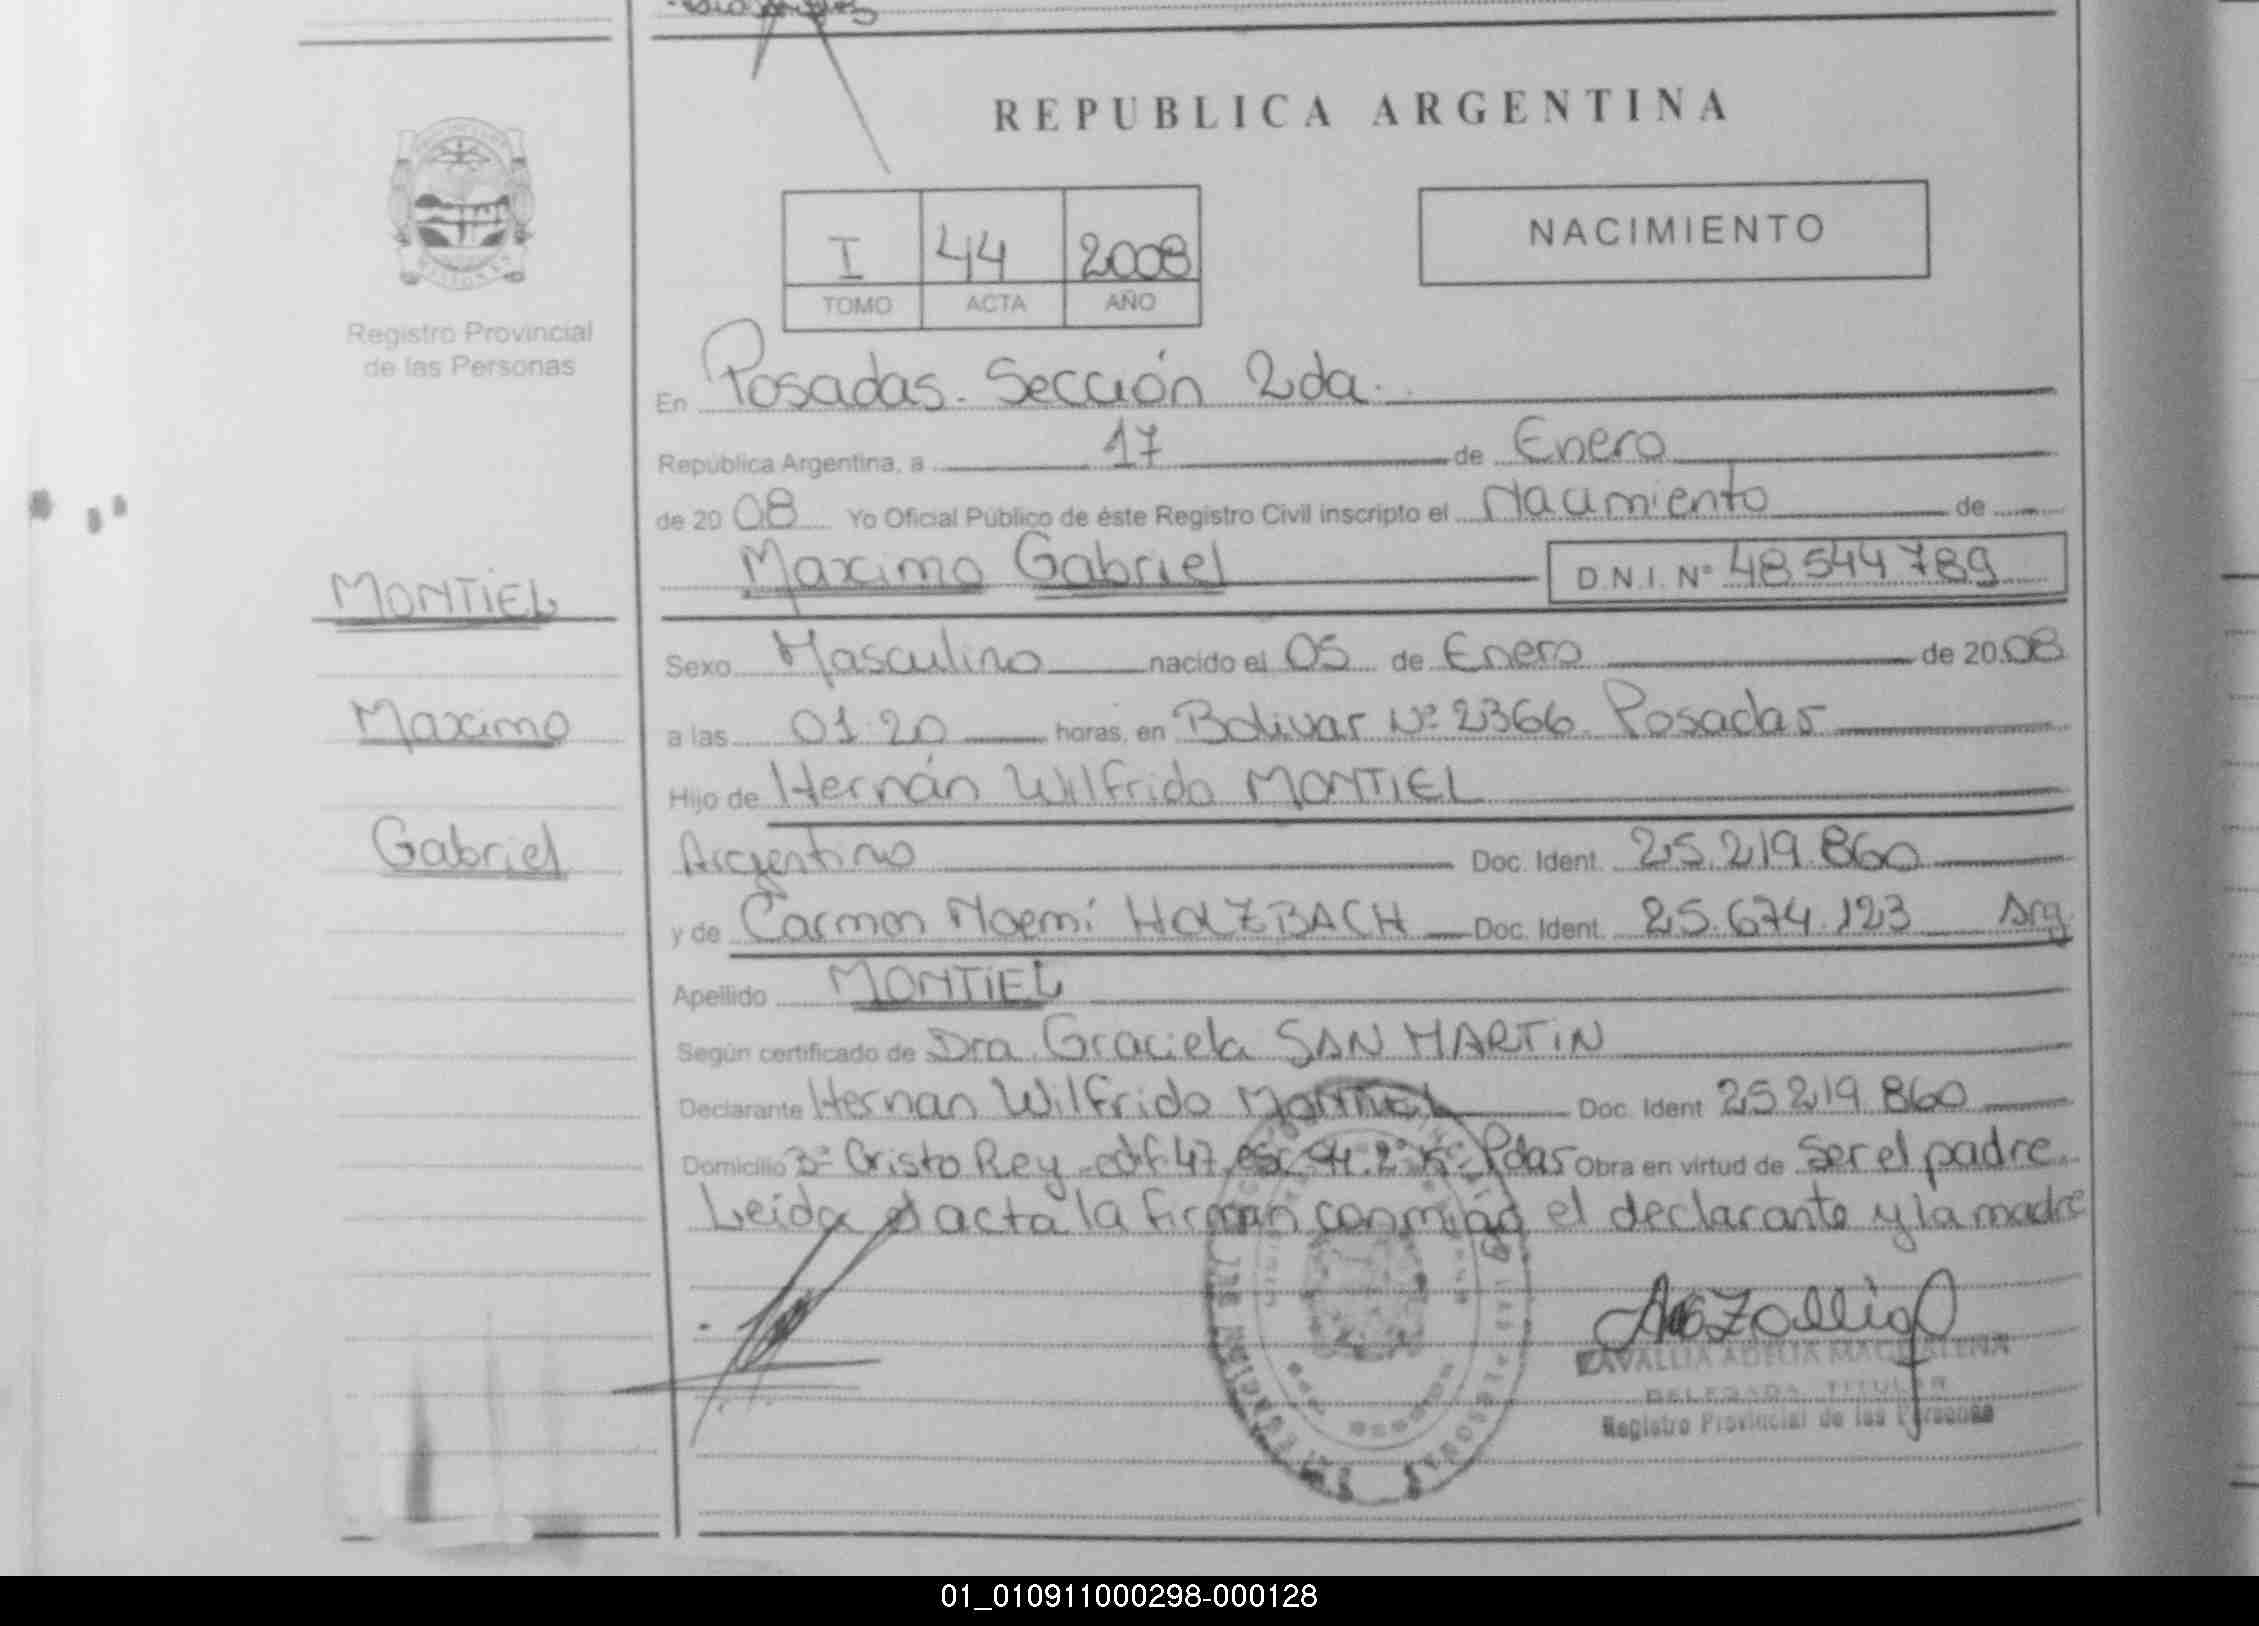 REPUBLICA ARGENTINA
I 44 2008
TOMO ACTA AÑO
NACIMIENTO
Registro Provincial
de las Personas
En Posadas. Sección 2da.
República Argentina, a 17 de Enero
de 20 08 Yo Oficial Público de éste Registro Civil inscripto el Nacimiento de
Maximo Gabriel D.N.I. Nº 48.544.789
MONTIEL
Maximo
Gabriel
Sexo Masculino nacido el 05 de Enero de 20 08
a las 01.20 horas, en Bolivar Nº 2366. Posadas
Hijo de Hernán Wilfrido MONTIEL
Argentino Doc. Ident. 25.219.860
y de Carmen Noemí HOLZBACH Doc. Ident. 25.674.123 Arg
Apellido MONTIEL
Según certificado de Dra. Graciela SAN MARTIN
Declarante Hernan Wilfrido MONTIEL Doc. Ident 25.219.860
Domicilio Cristo Rey edif 47 Pdas Obra en virtud de Ser el padre.
Leida el acta la firman conmigo el declarante y la madre
ADELIA MAGDALENA
DELEGADA TITULAR
Registro Provincial de las Personas
01_010911000298-000128